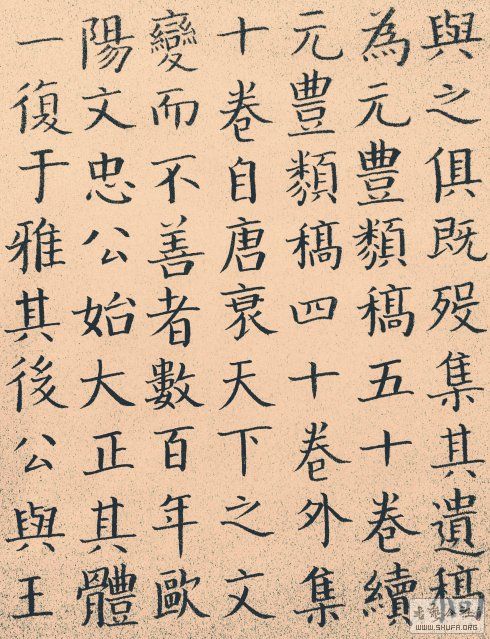 與之俱既殁集其遺稿
為元豐類稿五十卷續
元豐類稿四十卷外集
十卷自唐衰天下之文
變而不善者數百年歐
陽文忠公始大正其體
一復于雅其後公與王
WWW.SHUFA.ORG